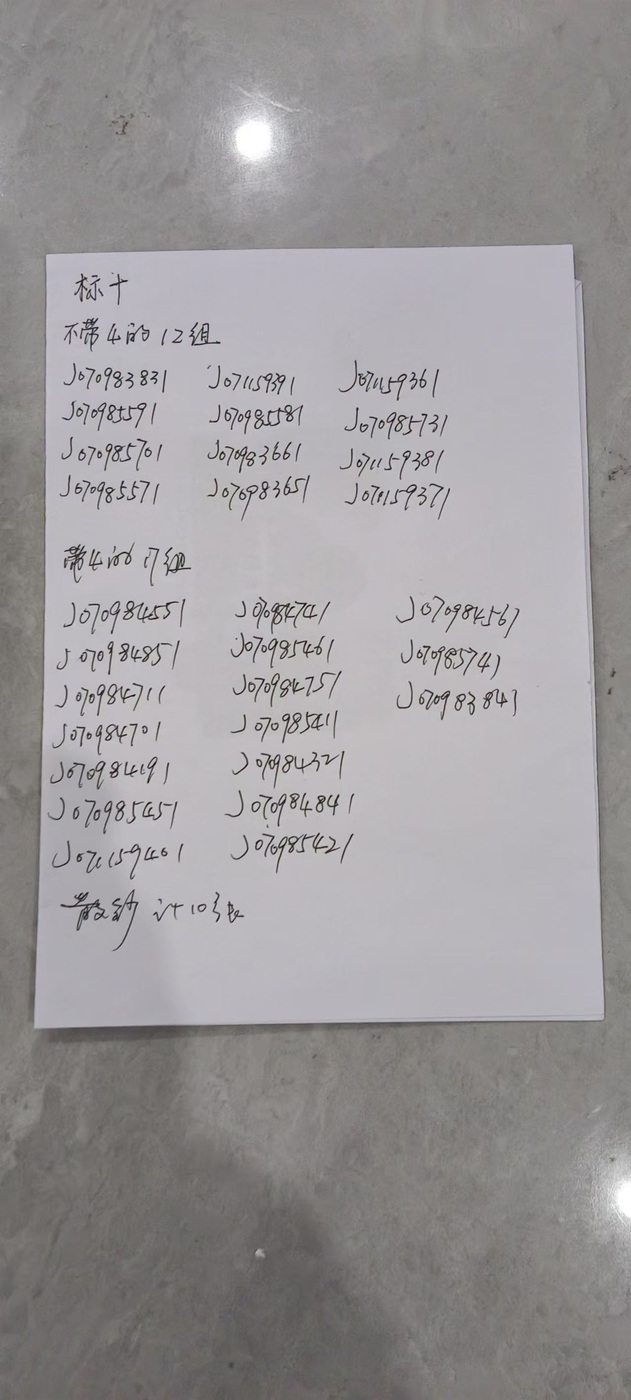 标十
不带4的12组
J070983831 J071159391 J071159361
J070985591 J070985581 J070985731
J070985701 J070983661 J071159381
J070985571 J070983651 J071159371
带4的17组
J070984551 J070984741 J070984561
J070984851 J070985461 J070985741
J070984711 J070984751 J070983841
J070984701 J070985411
J070984191 J070984321
J070985451 J070984841
J071159401 J070985421
散钞 计10张